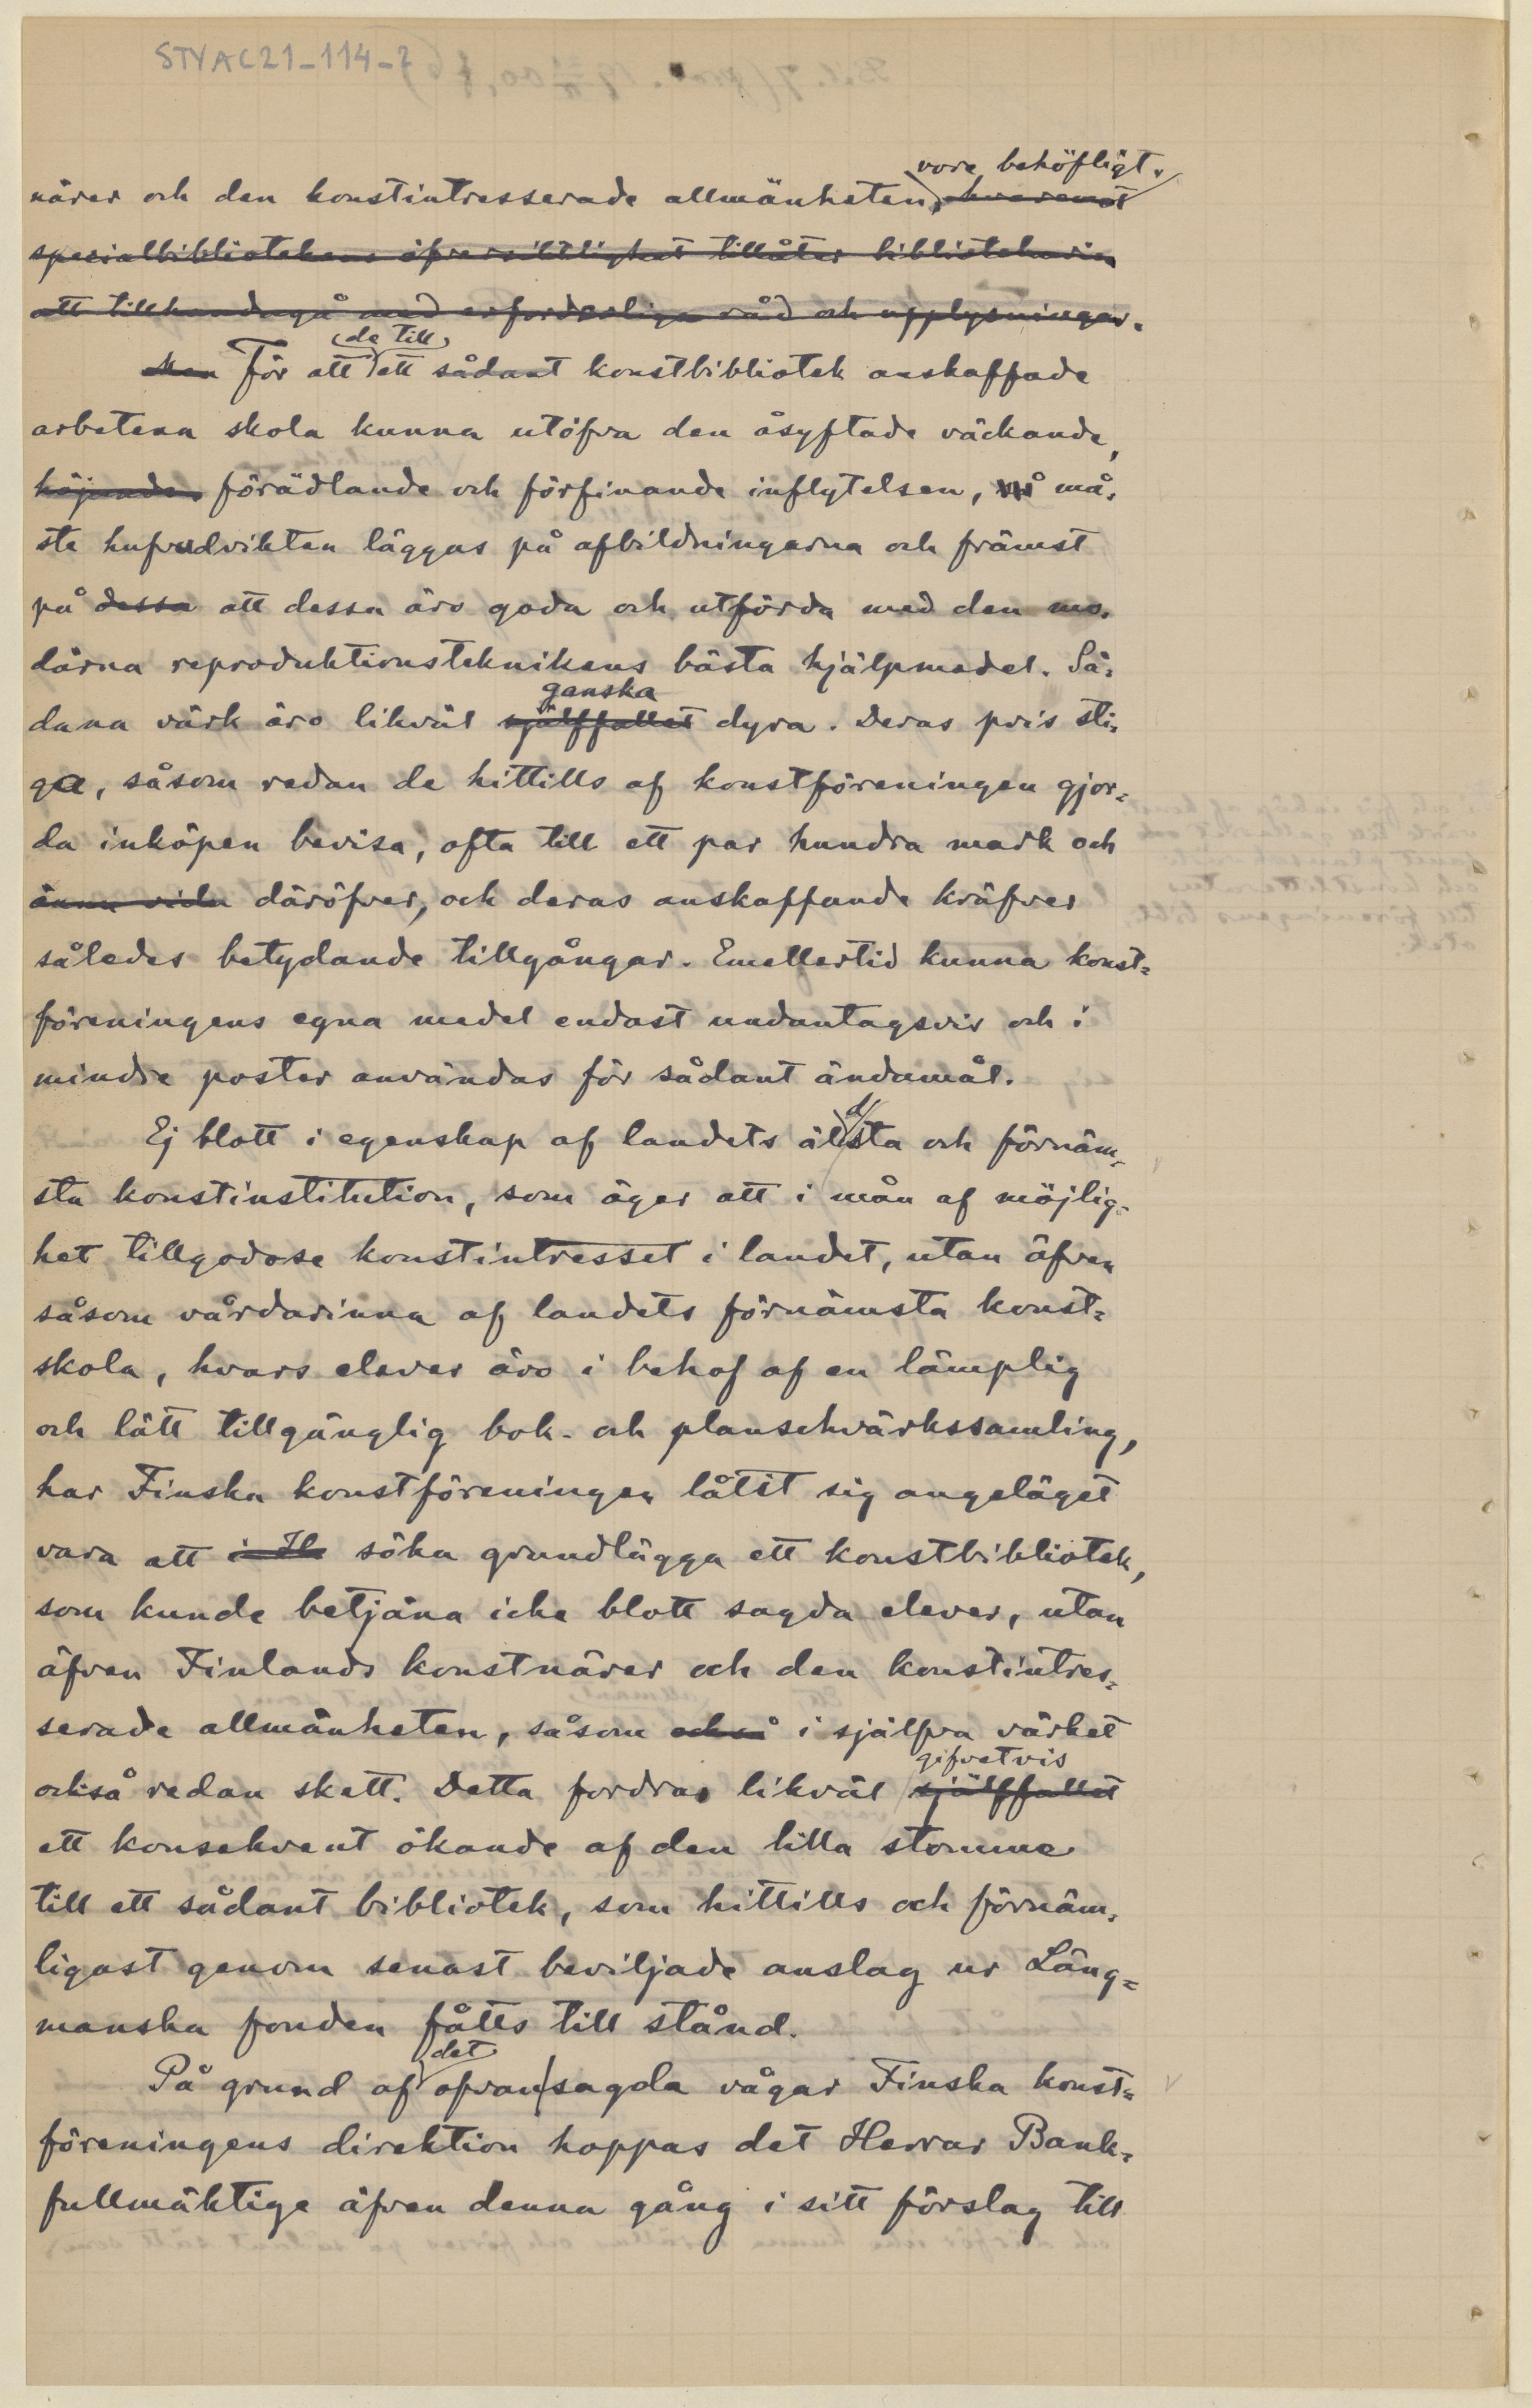 STYAC21-114-2
vore behöfligt.
närer och den konstintresserade allmänheten, hvaremot
specialbibliotekens öfversiktlighet tillåter bibliotekarien
att tillhandagå med erforderliga råd och upplysningar.
de till
Men För att ett sådant konstbibliotek anskaffade
arbetena skola kunna utöfva den åsyftade väckande,
höjande, förädlande och förfinande inflytelsen, må-
ste hufvudvikten läggas på afbildningarna och främst
på dessa att dessa äro goda och utförda med den mo-
därna reproduktionsteknikens bästa hjälpmedel. Så-
ganska
dana värk äro likväl själffallet dyra. Deras pris sti-
ga, såsom redan de hittills af konstföreningen gjor-
da inköpen bevisa, ofta till ett par hundra mark och
ännu vida däröfver, och deras anskaffande kräfver
således betydande tillgångar. Emellertid kunna konst-
föreningens egna medel endast undantagsvis och i
mindre poster användas för sådant ändamål.
d
Ej blott i egenskap af landets älsta och förnäm-
sta konstinstitution, som äger att i mån af möjlig-
het tillgodose konstintresset i landet, utan äfven
såsom vårdarinna af landets förnämsta konst-
skola, hvars elever äro i behof af en lämplig
och lätt tillgänglig bok- och planschvärkssamling,
har Finska konstföreningen låtit sig angeläget
vara att i H söka grundlägga ett konstbibliotek,
som kunde betjäna icke blott sagda elever, utan
äfven Finlands konstnärer och den konstintres-
serade allmänheten, såsom också i själfva värket
gifvetvis
också redan skett. Detta fordras likväl själffallet
ett konsekvent ökande af den lilla stomme
till ett sådant bibliotek, som hittills och förnäm-
ligast genom senast beviljade anslag ur Läng-
manska fonden fåtts till stånd.
det
På grund af ofvansagda vågar Finska konst-
föreningens direktion hoppas det Herrar Bank-
fullmäktige äfven denna gång i sitt förslag till